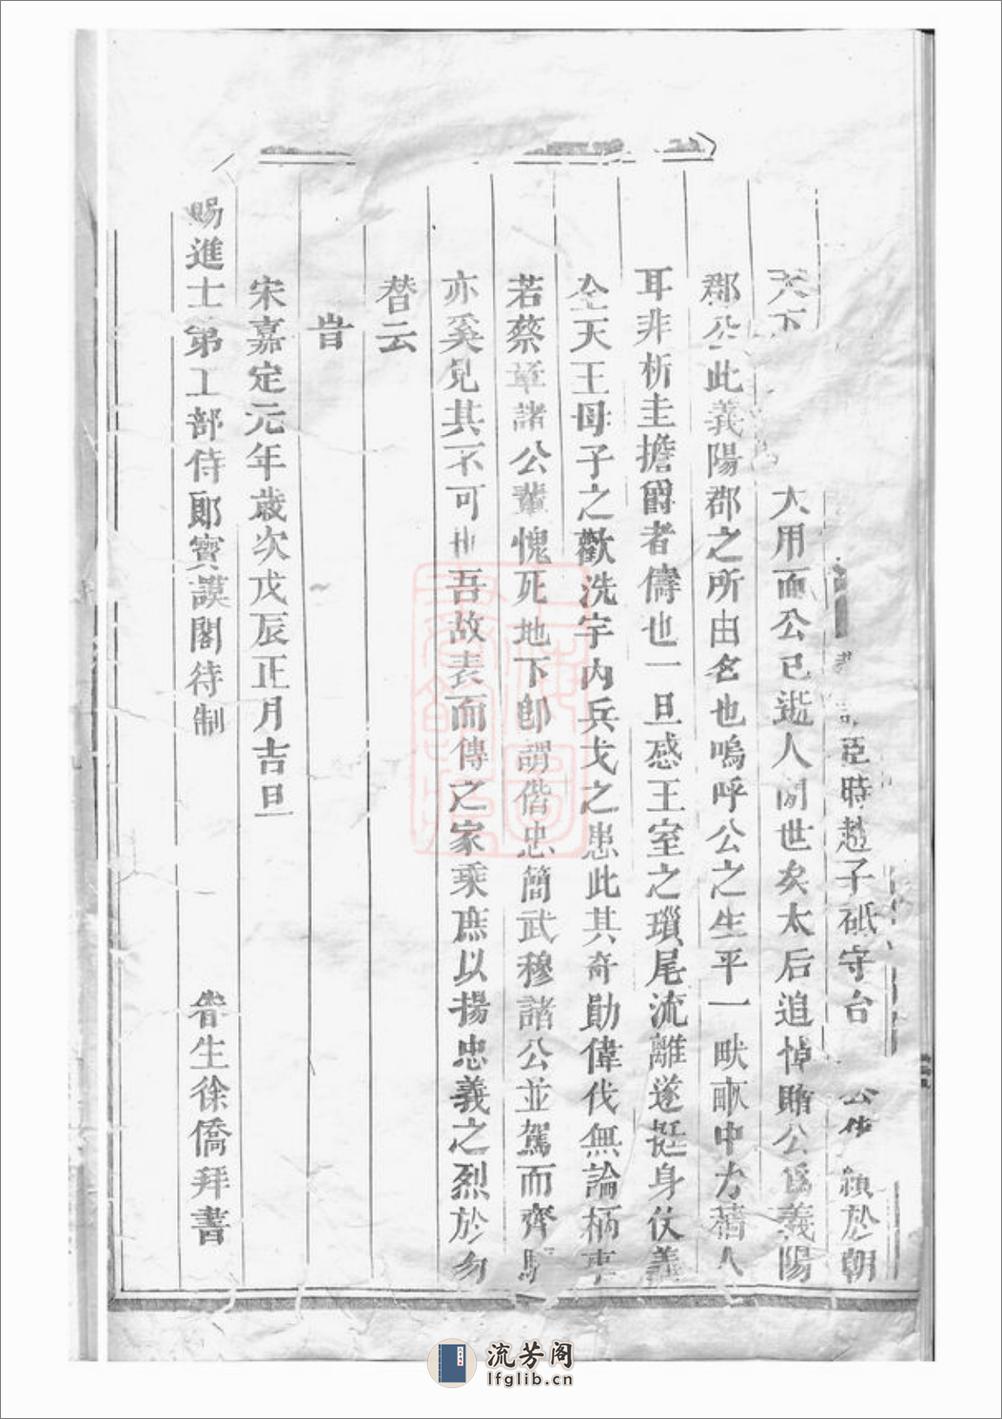 臣時趙子砥守台 公 於朝
天下 大用而公已逝人間世矣太后追悼贈公爲義陽
郡公此義陽郡之所由名也嗚呼公之生平一畎畝中力穡人
耳非析圭擔爵者儔也一旦感王室之瑣尾流離遂挺身仗義
全天王母子之歡洗宇内兵戈之患此其奇勛偉伐無論柄事
若蔡章諸公輩愧死地下卽謂偕忠簡武穆諸公並駕而齊驅
亦奚見其不可也吾故表而傳之家乘庶以揚忠義之烈於勿
替云
旹
宋嘉定元年歲次戊辰正月吉旦
賜進士第工部侍郎寶謨閣待制 眷生徐僑拜書
流芳阁
lfglib.cn